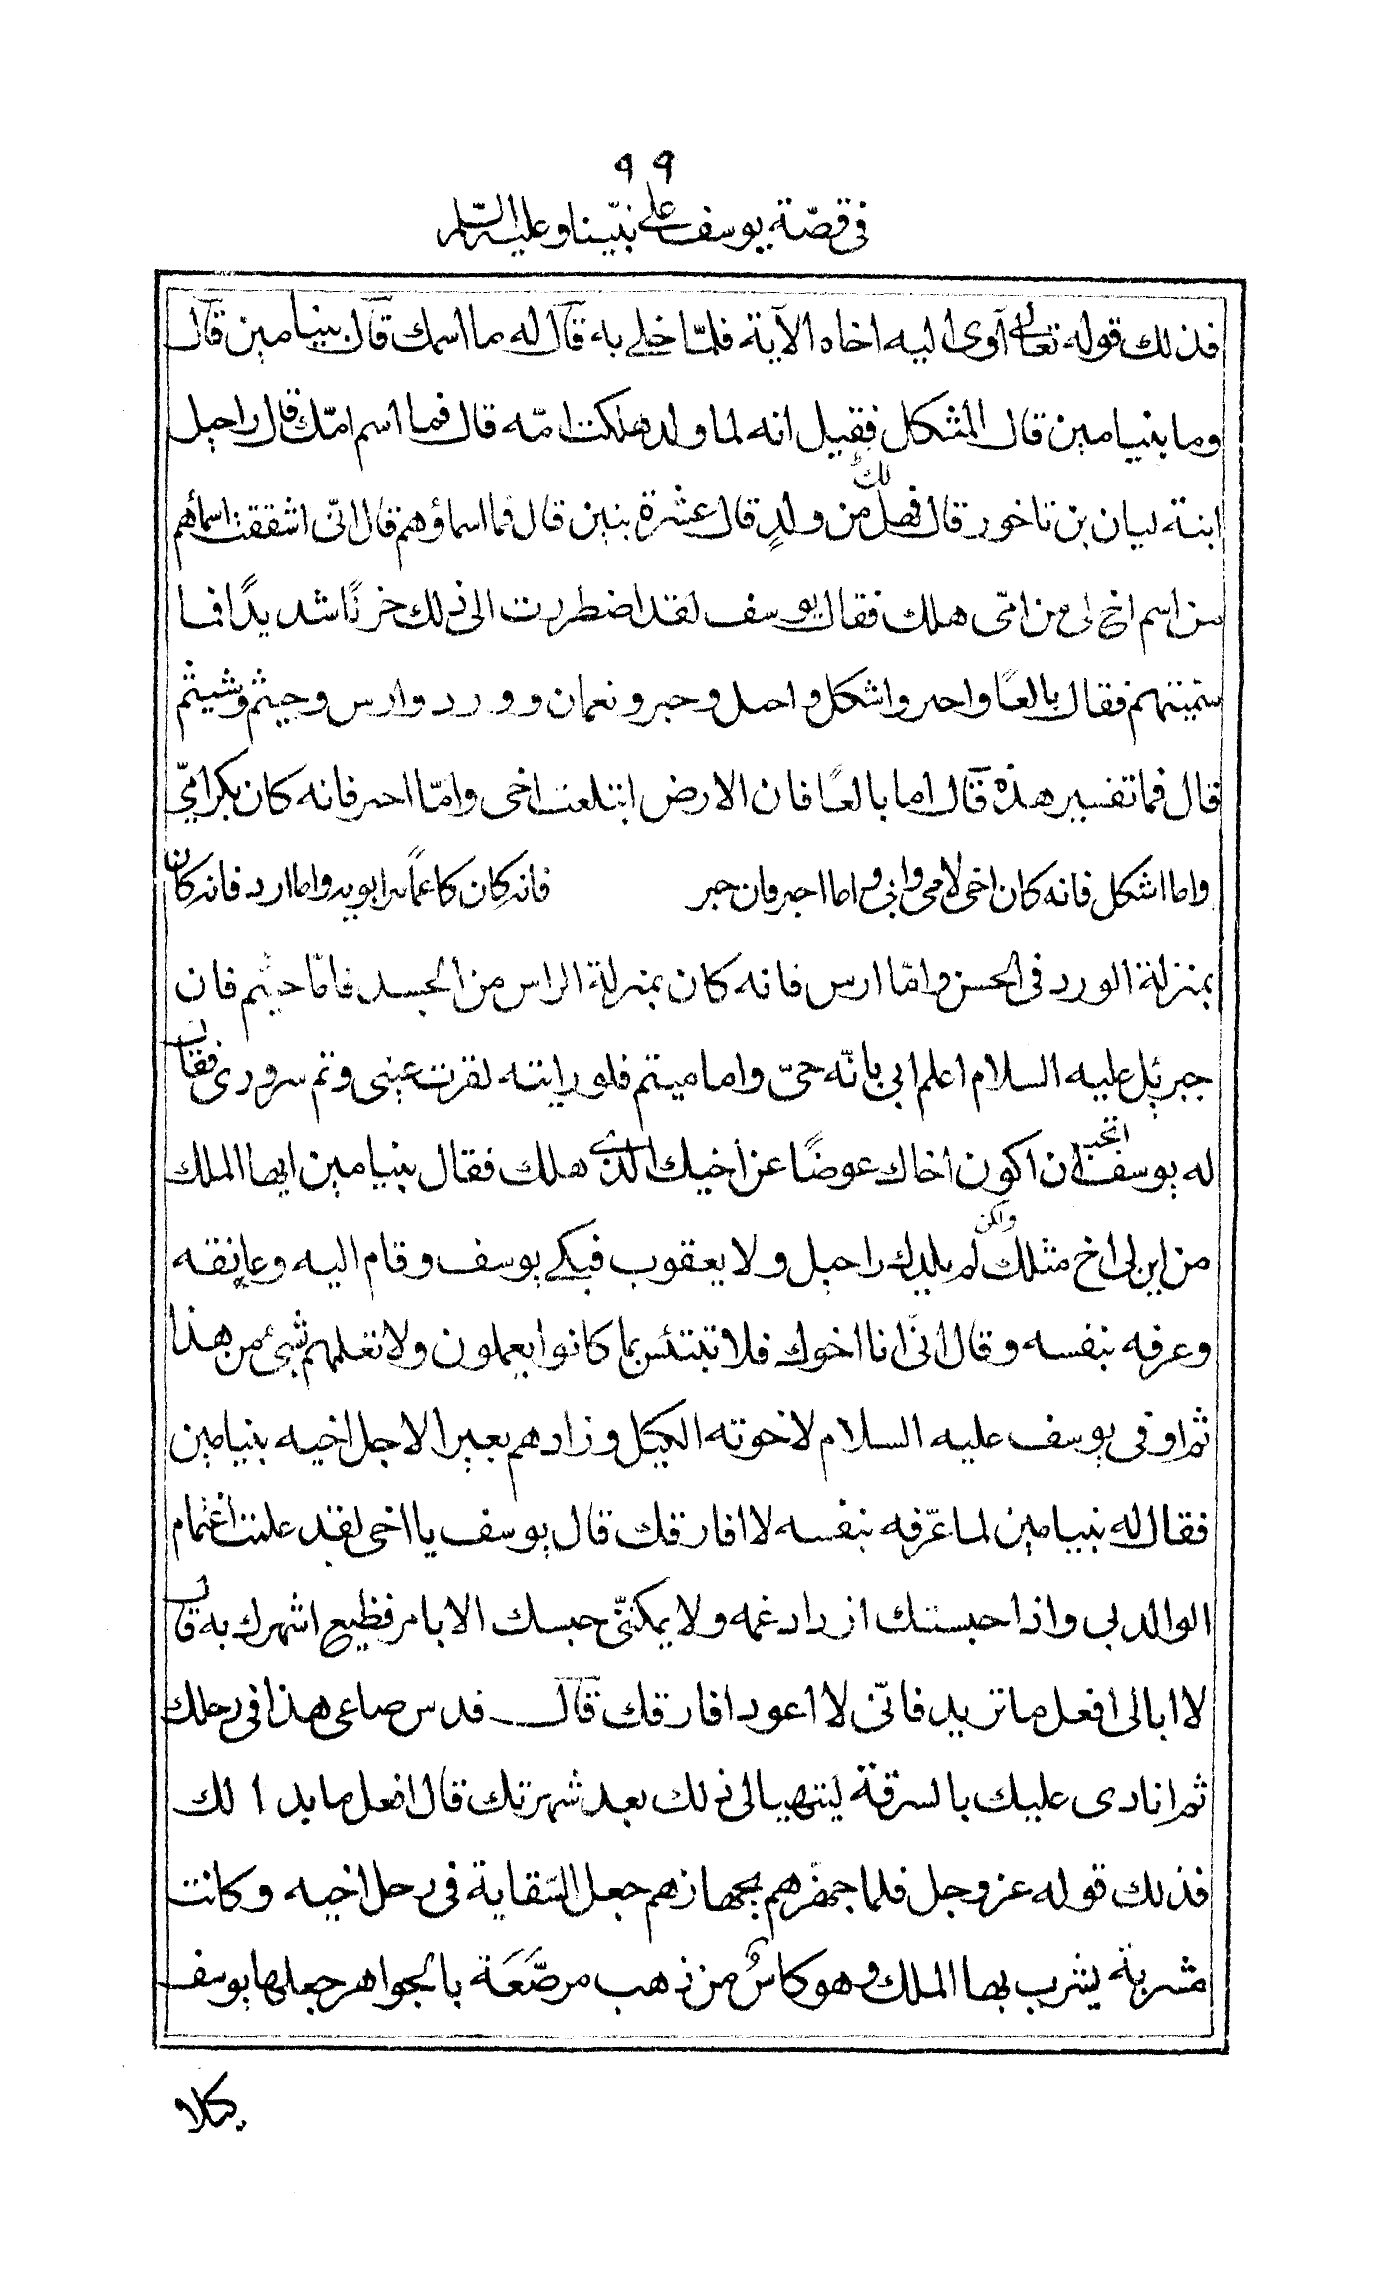 ٩٩
في قصّة يوسف على نبيّنا وعليه السّلم
فذلك قوله تعالى آوى اليه اخاه الآية فلمّا خلي به قال له ما اسمك قال بنيامين قال
وما بنيامين قال المثكل فقيل انه لما ولد هلكت امّه قال فما اسم امّك قال راحيل
ابنة ليان بن ناخور قال فهل لك من ولدٍ قال عشرة بنين قال فما اسماؤهم قال انّى اشققت اسمائهم
من اسم اخ لى من امّى هلك فقال يوسف لقد اضطررت الى ذلك حزنًا شديدًا فما
سمّيتهم فقال بالعًا و احر واشكل و احل و حبر و نعمان و ورد و ارس و حيثم و شيثم
قال فما تفسير هذه قال اما بالعًا فان الارض ابتلعت اخى وامّا احر فانه كان بكر امّي
واما اشكل فانه كان اخى لامى وابى واما احبر فان حبر فانه كان كاعما بر ابويه واما ارد فانه كان
بمنزلة الورد فى الحسن وامّا ارس فانه كان بمنزلة الراس من الجسد فامّا حيثم فان
جبرئيل عليه السلام اعلم ابى بانّه حىّ واما ميتم فلو رايته لقرت عينى وتم سرورى فقال
له يوسف اتحب ان اكون اخاك عوضًا عن اخيك الذى هلك فقال بنيامين ايها الملك
من اين لى اخ مثلك ولكن لم يلدك راحيل ولا يعقوب فبكى يوسف وقام اليه وعانقه
وعرفه بنفسه وقال انّى انا اخوك فلا تبتئس بما كانوا يعملون ولا تعلمهم شئ من هذا
ثم اوفى يوسف عليه السلام لاخوته الكيل وزادهم بعيرا لاجل اخيه بنيامين
فقال له بنيامين لما عرّفه بنفسه لا افارقك قال يوسف يا اخى لقد علمت اغتمام
الوالد بى واذا حبستك ازداد غمه ولا يمكننّى حبسك الا بامر فظيع اشهرك به قال
لا ابالى افعل ما تريد فانّى لا اعود افارقك قال فدس صاعى هذا فى رحلك
ثم انادى عليك بالسرقة ليتهيا لى ذلك بعد شهرتك قال افعل ما بدا لك
فذلك قوله عز وجل فلما جهّزهم بجهازهم جعل السّقاية فى رحل اخيه وكانت
مشربة يشرب بها الملك وهو كاسٌ من ذهب مرصَّعَة بالجواهر جعلها يوسف
يكلا